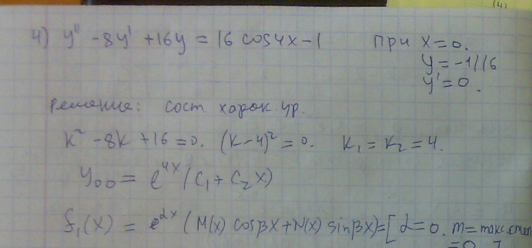 4) y'' - 8y' + 16y = 16 cos4x - 1 при x=0.
y = -1/16
y' = 0.
Решение: сост харак ур.
k² - 8k + 16 = 0. (k-4)² = 0. k₁ = k₂ = 4.
y₀₀ = e⁴ˣ (C₁ + C₂ x)
f₁(x) = e^αx (M(x) cosβx + N(x) sinβx) = [α=0. m=